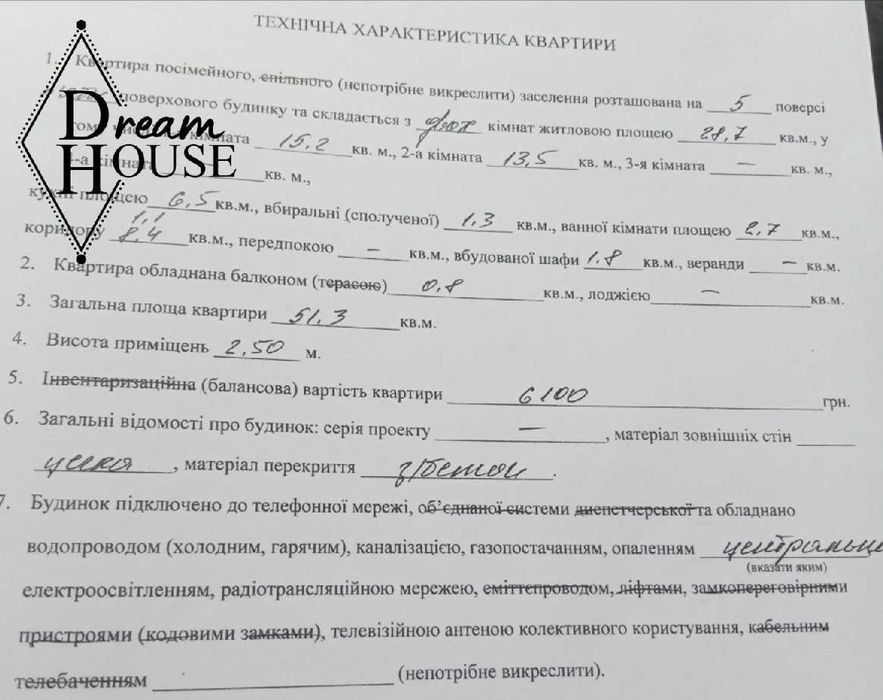 ТЕХНІЧНА ХАРАКТЕРИСТИКА КВАРТИРИ
1. Квартира посімейного, спільного (непотрібне викреслити) заселення розташована на 5 поверсі
поверхового будинку та складається з двох кімнат житловою площею 28,7 кв.м., у
кімната 15,2 кв. м., 2-а кімната 13,5 кв. м., 3-я кімната — кв. м.,
кімната кв. м.,
кухні площею 6,5 кв.м., вбиральні (сполученої) 1,3 кв.м., ванної кімнати площею 2,7 кв.м.,
1,1
коридору 8,4 кв.м., передпокою — кв.м., вбудованої шафи 1,8 кв.м., веранди — кв.м.
2. Квартира обладнана балконом (терасою) 0,8 кв.м., лоджією — кв.м.
3. Загальна площа квартири 51,3 кв.м.
4. Висота приміщень 2,50 м.
5. Інвентаризаційна (балансова) вартість квартири 6100 грн.
6. Загальні відомості про будинок: серія проекту — , матеріал зовнішніх стін
цегла, матеріал перекриття з/бетон.
7. Будинок підключено до телефонної мережі, об'єднаної системи диспетчерської та обладнано
водопроводом (холодним, гарячим), каналізацією, газопостачанням, опаленням
(вказати яким)
електроосвітленням, радіотрансляційною мережею, сміттєпроводом, ліфтами, замкопереговірними
пристроями (кодовими замками), телевізійною антеною колективного користування, кабельним
телебаченням (непотрібне викреслити).
Dream
HOUSE